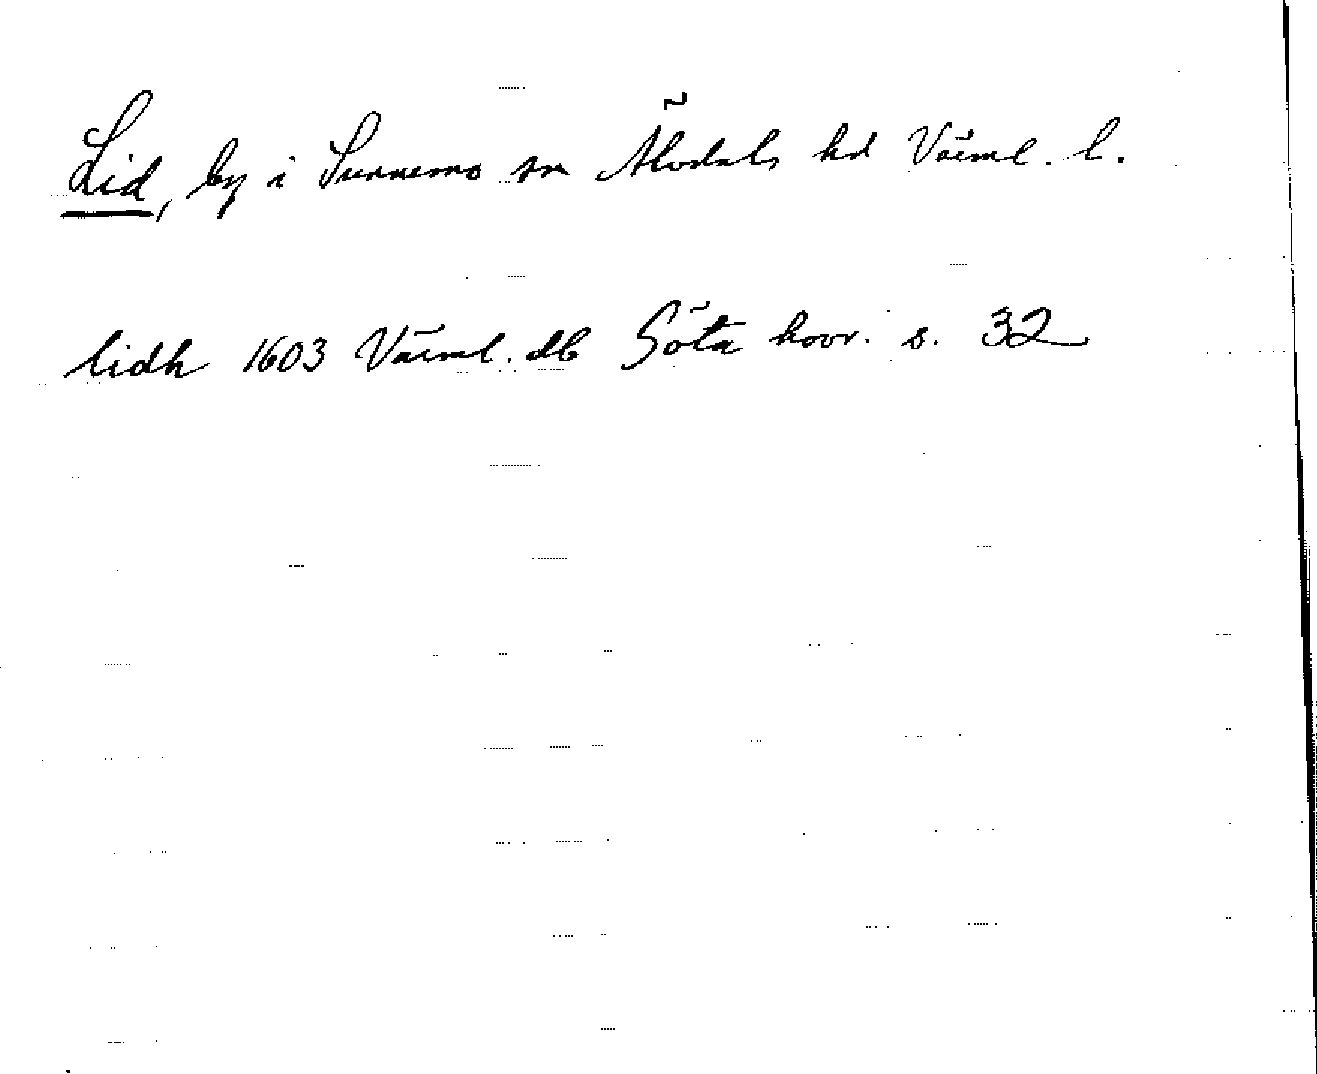 Lid, by i Sunnemo sn Älvdals hd Värml. l.
lidh 1603 Värml. db Göta hovr. s. 32